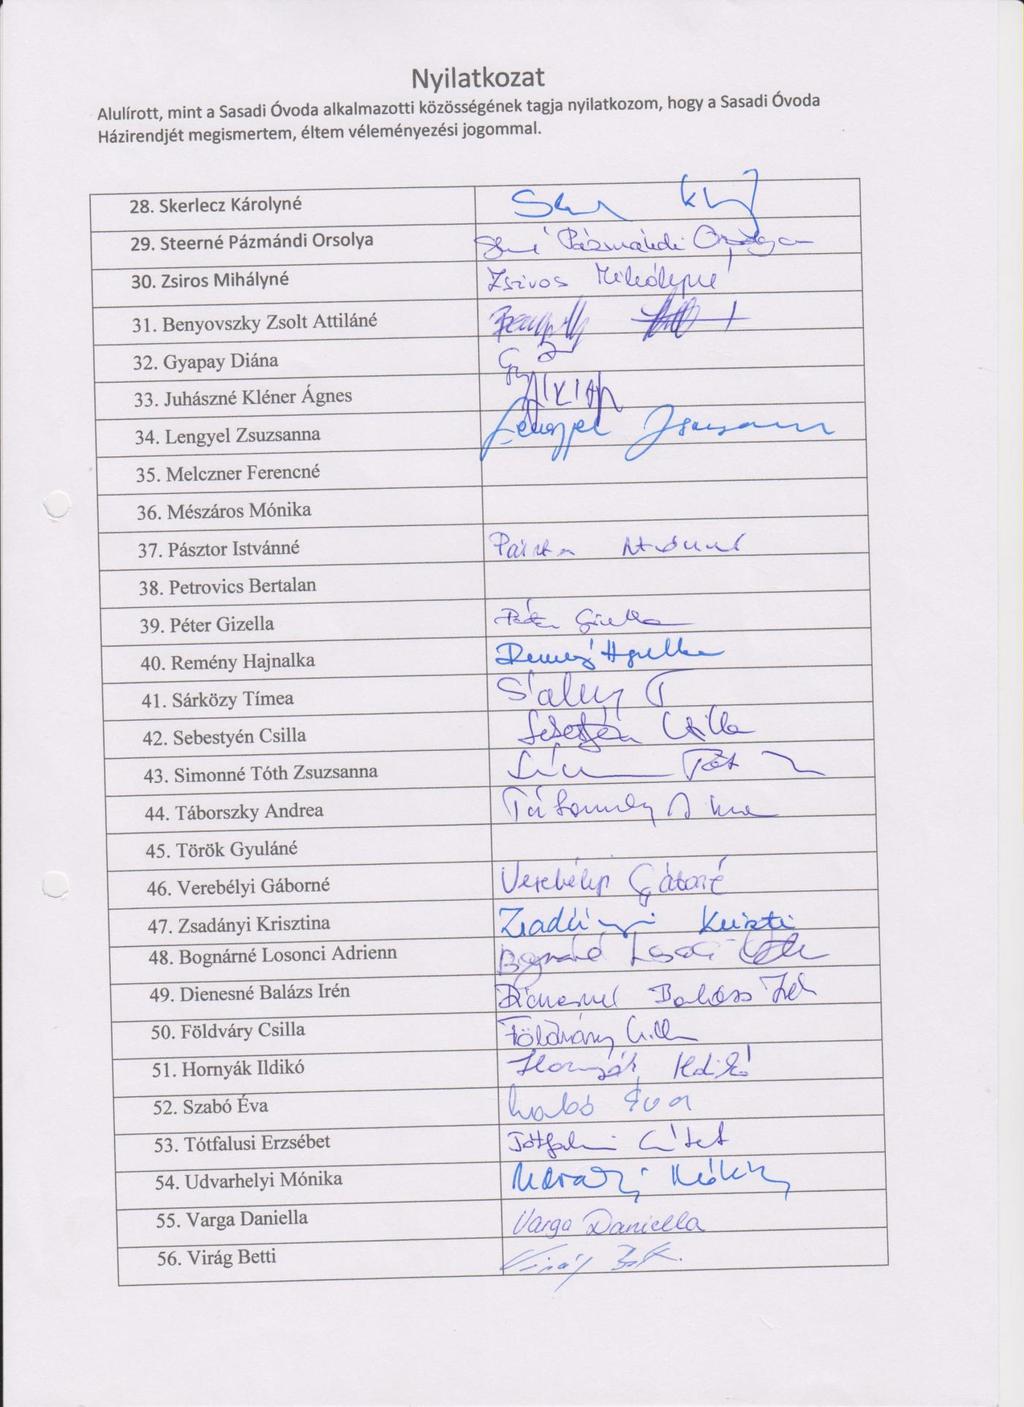 Nyilatkozat
Alulírott, mint a Sasadi Óvoda alkalmazotti közösségének tagja nyilatkozom, hogy a Sasadi Óvoda
Házirendjét megismertem, éltem véleményezési jogommal.
28. Skerlecz Károlyné
29. Steerné Pázmándi Orsolya Pázmándi Orsolya
30. Zsiros Mihályné Zsiros Mihályné
31. Benyovszky Zsolt Attiláné
32. Gyapay Diána
33. Juhászné Kléner Ágnes
34. Lengyel Zsuzsanna Lengyel Zsuzsanna
35. Melczner Ferencné
36. Mészáros Mónika
37. Pásztor Istvánné
38. Petrovics Bertalan
39. Péter Gizella Péter Gizella
40. Remény Hajnalka
41. Sárközy Tímea
42. Sebestyén Csilla Sebestyén Csilla
43. Simonné Tóth Zsuzsanna
44. Táborszky Andrea
45. Török Gyuláné
46. Verebélyi Gáborné Verebélyi Gáborné
47. Zsadányi Krisztina
48. Bognárné Losonci Adrienn Bognárné
49. Dienesné Balázs Irén Dienesné Balázs Irén
50. Földváry Csilla Földváry Csilla
51. Hornyák Ildikó Hornyák Ildikó
52. Szabó Éva Szabó Éva
53. Tótfalusi Erzsébet
54. Udvarhelyi Mónika
55. Varga Daniella Varga Daniella
56. Virág Betti Virág